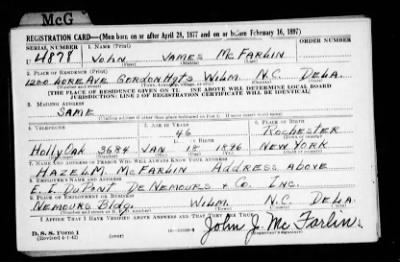 McG
REGISTRATION CARD—(Men born on or after April 28, 1877 and on or before February 16, 1897)
SERIAL NUMBER 1. NAME (Print) ORDER NUMBER
U 4878 JOHN JAMES MCFARLIN
(First) (Middle) (Last)
2. PLACE OF RESIDENCE (Print)
1200 LORE AVE GORDON HGTS WILM. N.C. DELA.
[THE PLACE OF RESIDENCE GIVEN ON THE LINE ABOVE WILL DETERMINE LOCAL BOARD
JURISDICTION; LINE 2 OF REGISTRATION CERTIFICATE WILL BE IDENTICAL]
3. MAILING ADDRESS
SAME
[Mailing address if other than place indicated on line 2. If same insert word same]
4. TELEPHONE 5. AGE IN YEARS 6. PLACE OF BIRTH
46 ROCHESTER
DATE OF BIRTH
HOLLYOAK 3684 JAN 19 1896 NEW YORK
7. NAME AND ADDRESS OF PERSON WHO WILL ALWAYS KNOW YOUR ADDRESS
HAZEL M. MCFARLIN ADDRESS ABOVE
8. EMPLOYER'S NAME AND ADDRESS
E. I. DUPONT DE NEMOURS & CO. INC.
9. PLACE OF EMPLOYMENT OR BUSINESS
NEMOURS BLDG. WILM. N.C. DELA.
I AFFIRM THAT I HAVE VERIFIED ABOVE ANSWERS AND THAT THEY ARE TRUE.
D. S. S. Form 1
(Revised 4-1-42)
John J. McFarlin